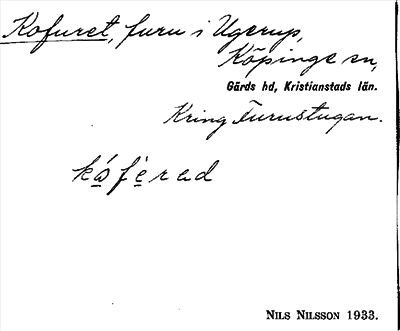 Kofuret, furu i Ugerup,
Köpinge sn,
Gärds hd, Kristianstads län.
Kring Furustugan.
ká̱fè̱rad
NILS NILSSON 1933.